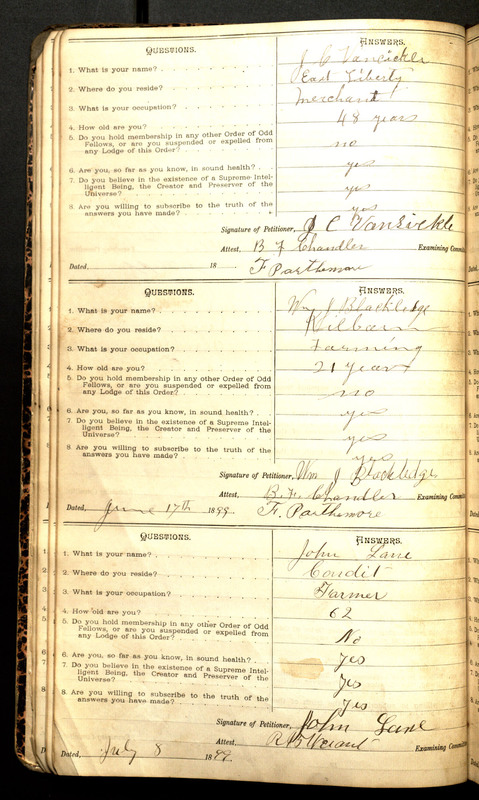 QUESTIONS. ANSWERS.
1. What is your name? J C Vansickle
2. Where do you reside? East Liberty
3. What is your occupation? Merchant
4. How old are you? 48 years
5. Do you hold membership in any other Order of Odd
Fellows, or are you suspended or expelled from
any Lodge of this Order? no
6. Are you, so far as you know, in sound health? yes
7. Do you believe in the existence of a Supreme Intel-
ligent Being, the Creator and Preserver of the
Universe? yes
8. Are you willing to subscribe to the truth of the
answers you have made? yes
Signature of Petitioner, J C VanSickle
Attest, B F Chandler Examining Commit
Dated, 18 F Parthemore
QUESTIONS. ANSWERS.
1. What is your name? Wm J Blackledge
2. Where do you reside? Kilbourn
3. What is your occupation? Farming
4. How old are you? 21 years
5. Do you hold membership in any other Order of Odd
Fellows, or are you suspended or expelled from
any Lodge of this Order? no
6. Are you, so far as you know, in sound health? yes
7. Do you believe in the existence of a Supreme Intel-
ligent Being, the Creator and Preserver of the
Universe? yes
8. Are you willing to subscribe to the truth of the
answers you have made? yes
Signature of Petitioner, Wm J Blackledge
Attest, B. F. Chandler Examining
Dated, June 17th 1899. F. Parthemore
QUESTIONS. ANSWERS.
1. What is your name? John Lane
2. Where do you reside? Condit
3. What is your occupation? Farmer
4. How old are you? 62
5. Do you hold membership in any other Order of Odd
Fellows, or are you suspended or expelled from
any Lodge of this Order? No
6. Are you, so far as you know, in sound health? Yes
7. Do you believe in the existence of a Supreme Intel-
ligent Being, the Creator and Preserver of the
Universe? Yes
8. Are you willing to subscribe to the truth of the
answers you have made? Yes
Signature of Petitioner, John Lane
Attest, Examining Commit
Dated, July 8 1899.